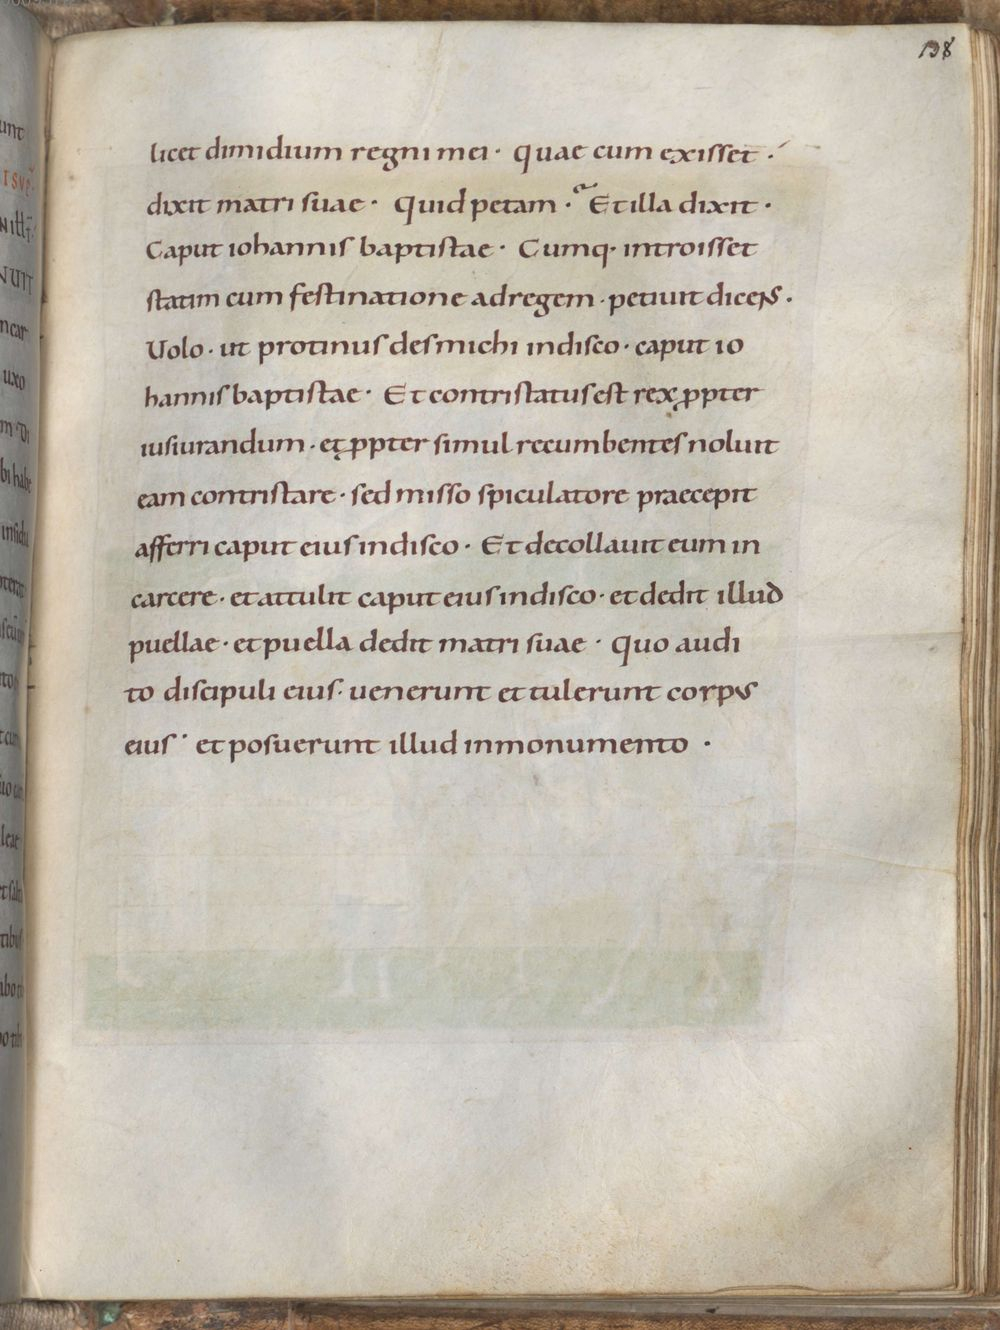 138
licet dimidium regni mei · quae cum exisset ·
dixit matri suae · Quid petam · Et illa dixit ·
Caput iohannis baptistae · Cumq· introisset
statim cum festinatione ad regem · petiuit dicens ·
Uolo · ut protinus des michi in disco · caput io
hannis baptistae · Et contristatus est rex ꝓpter
iusiurandum · et ꝓpter simul recumbentes noluit
eam contristare · sed misso spiculatore praecepit
afferri caput eius in disco · Et decollauit eum in
carcere · et attulit caput eius in disco · et dedit illud
puellae · et puella dedit matri suae · Quo audi
to discipuli eius · uenerunt et tulerunt corpus
eius · et posuerunt illud in monumento ·